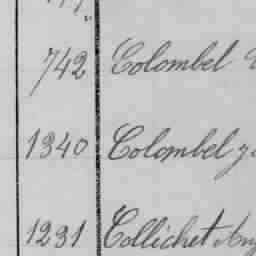 742 Colombel
1340 Colombel
1231 Collichet